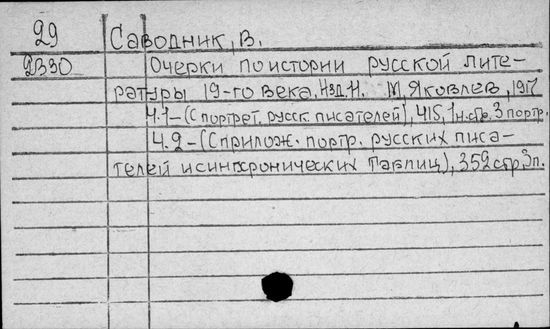 29 Саводник, В.
2В30 Очерки по истории русской лите-
ратуры 19-го века. Изд. 11. М. Яковлев, 1917
Ч.1-(С портрет. русск. писателей), 415, 1 н. стр. 3 портр.
Ч.2-(С прилож. портр. русских писа-
телей и синхронических таблиц), 352 стр. 3 п.